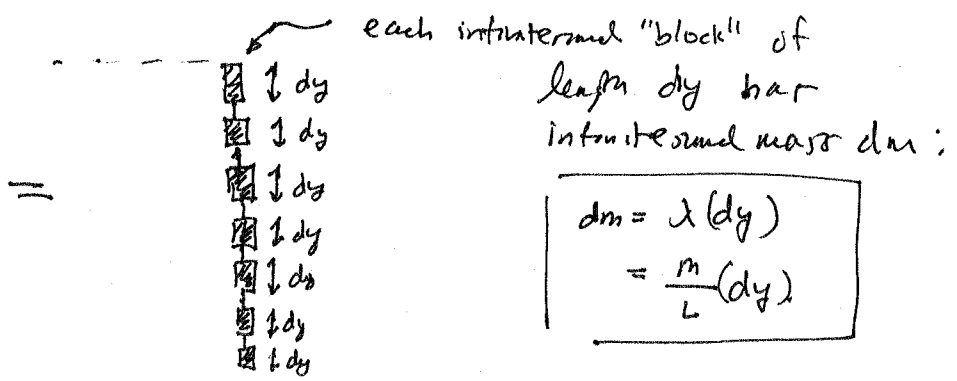 each infinitesimal "block" of
length dy has
infinitesimal mass dm:
dy
dy
=
dy
dy
dy
dy
dy
dm = λ(dy)
= m/L (dy)